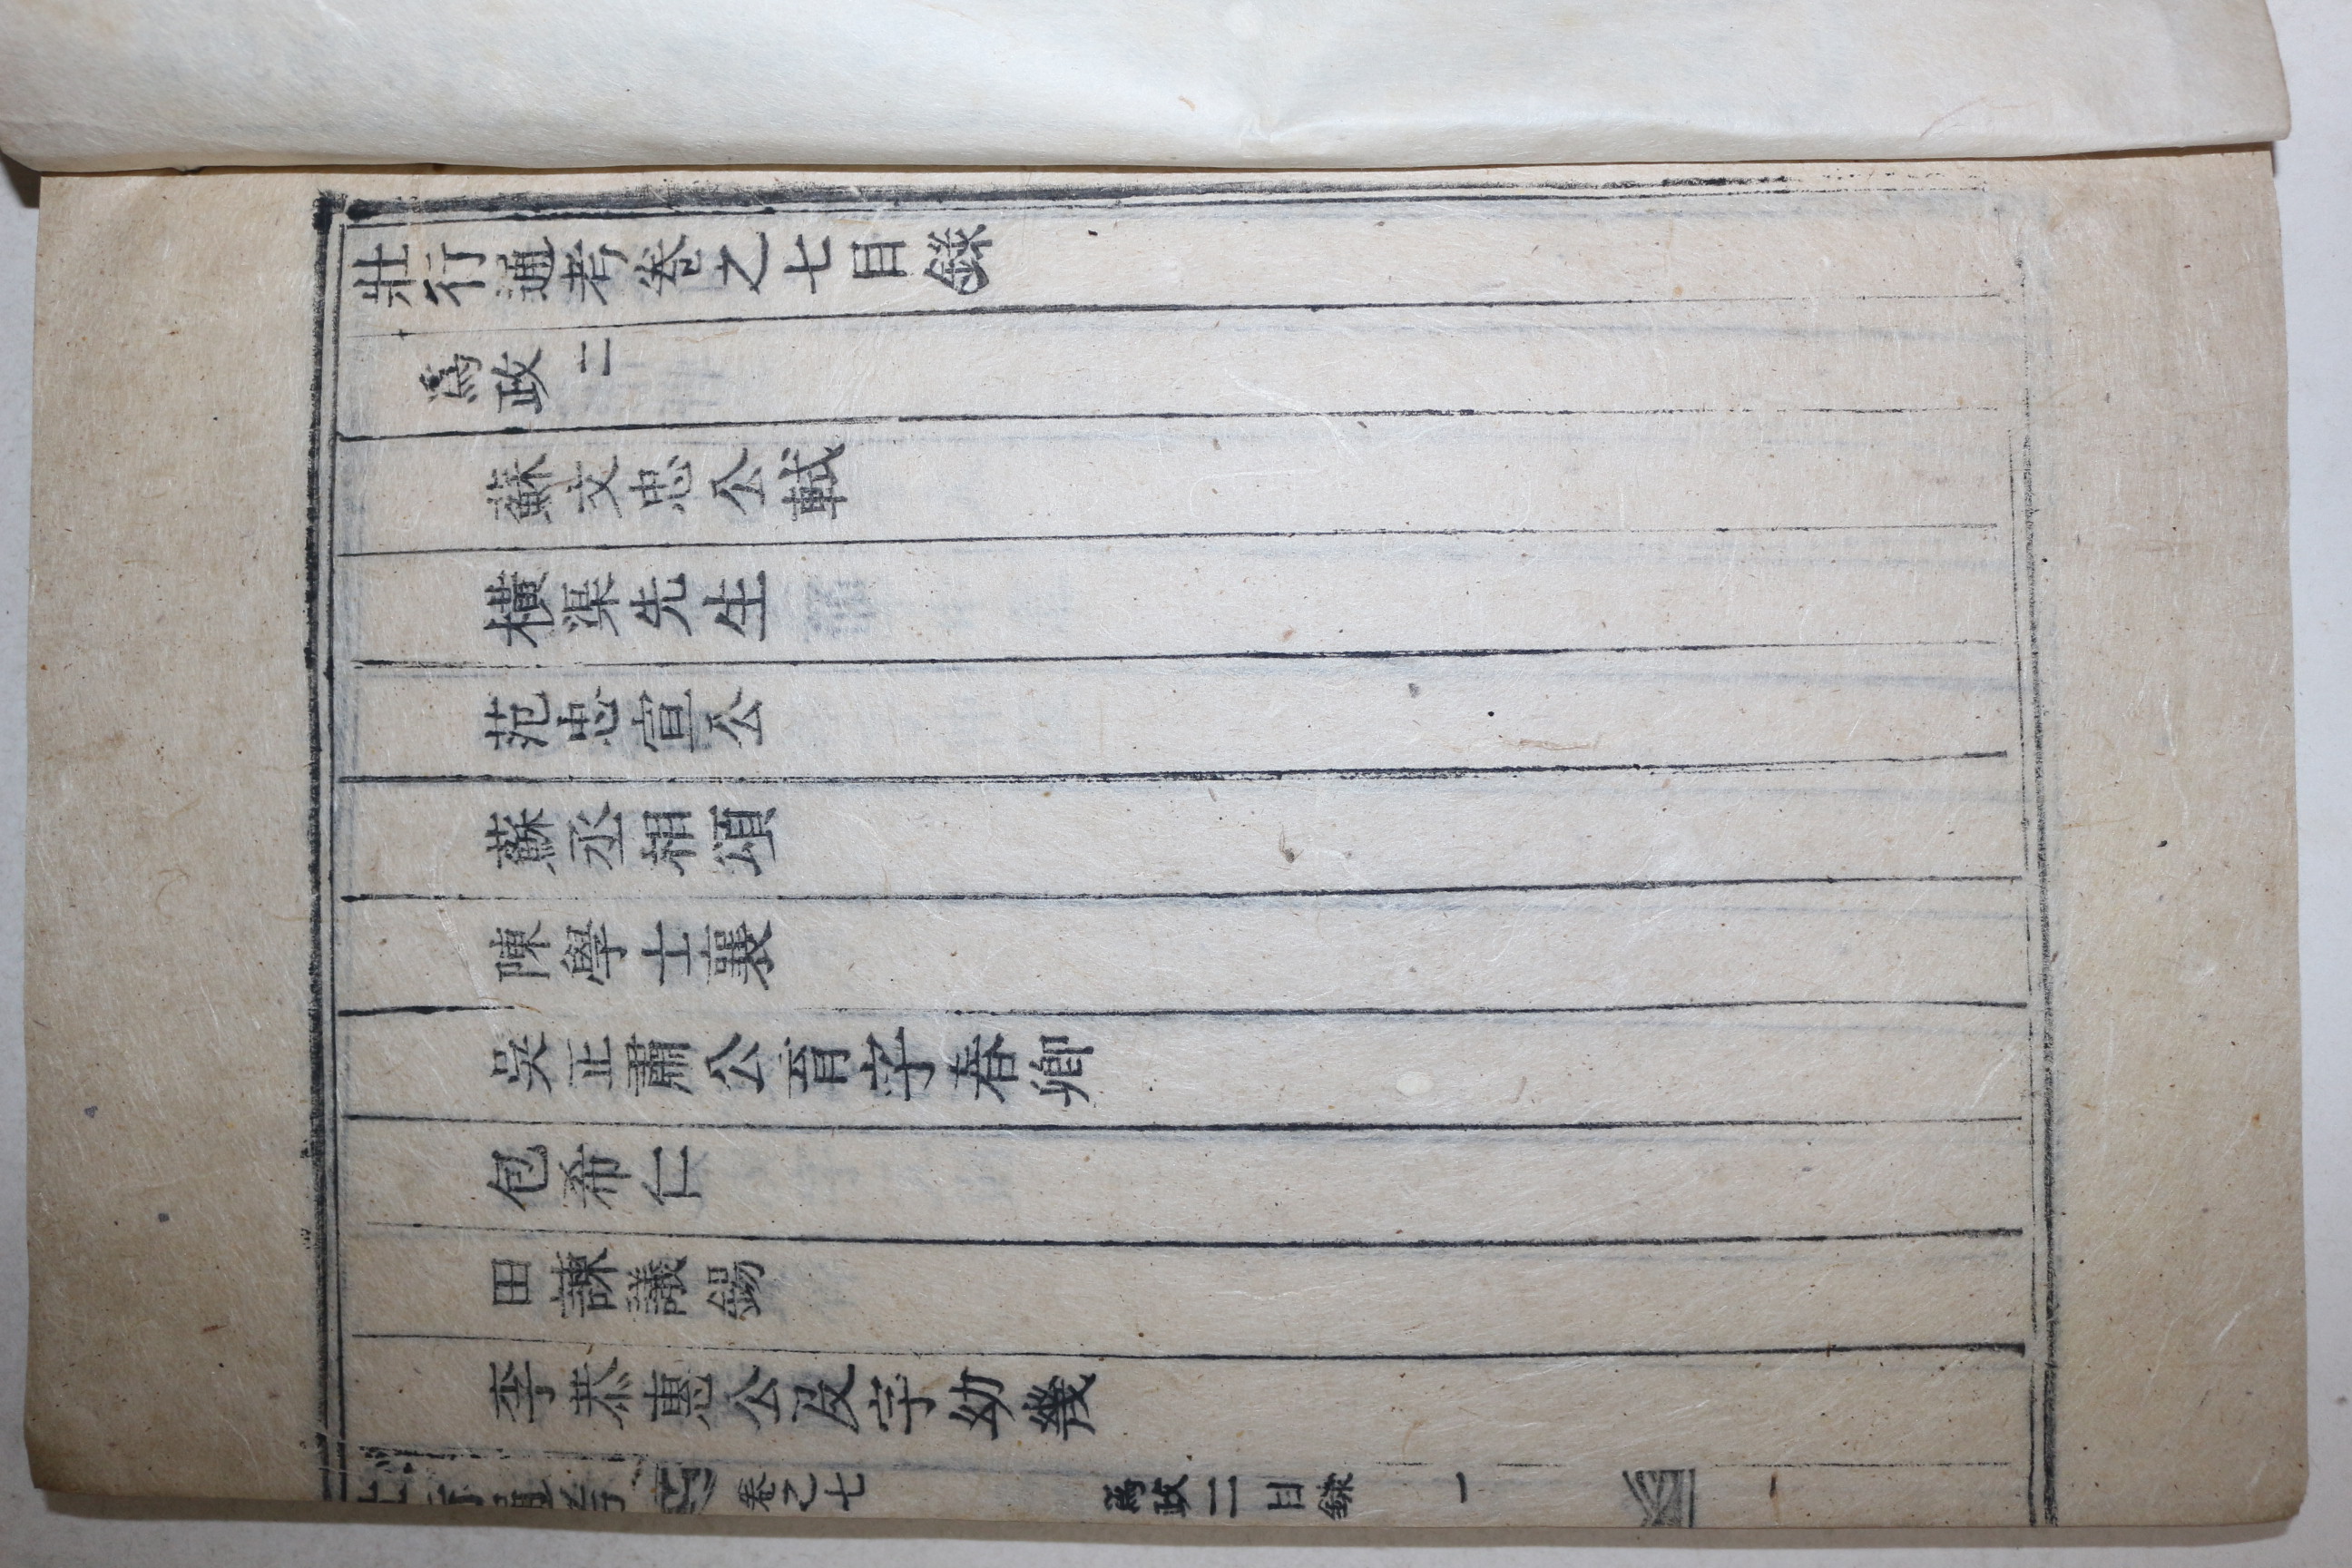 壯行通考卷之七目錄
爲政二
蘇文忠公軾
橫渠先生
范忠宣公
蘇丞相頌
陳學士襄
吳正肅公育字春卿
包希仁
田諫議錫
李恭惠公及字幼幾
壯行通考 卷之七 爲政二目錄 一